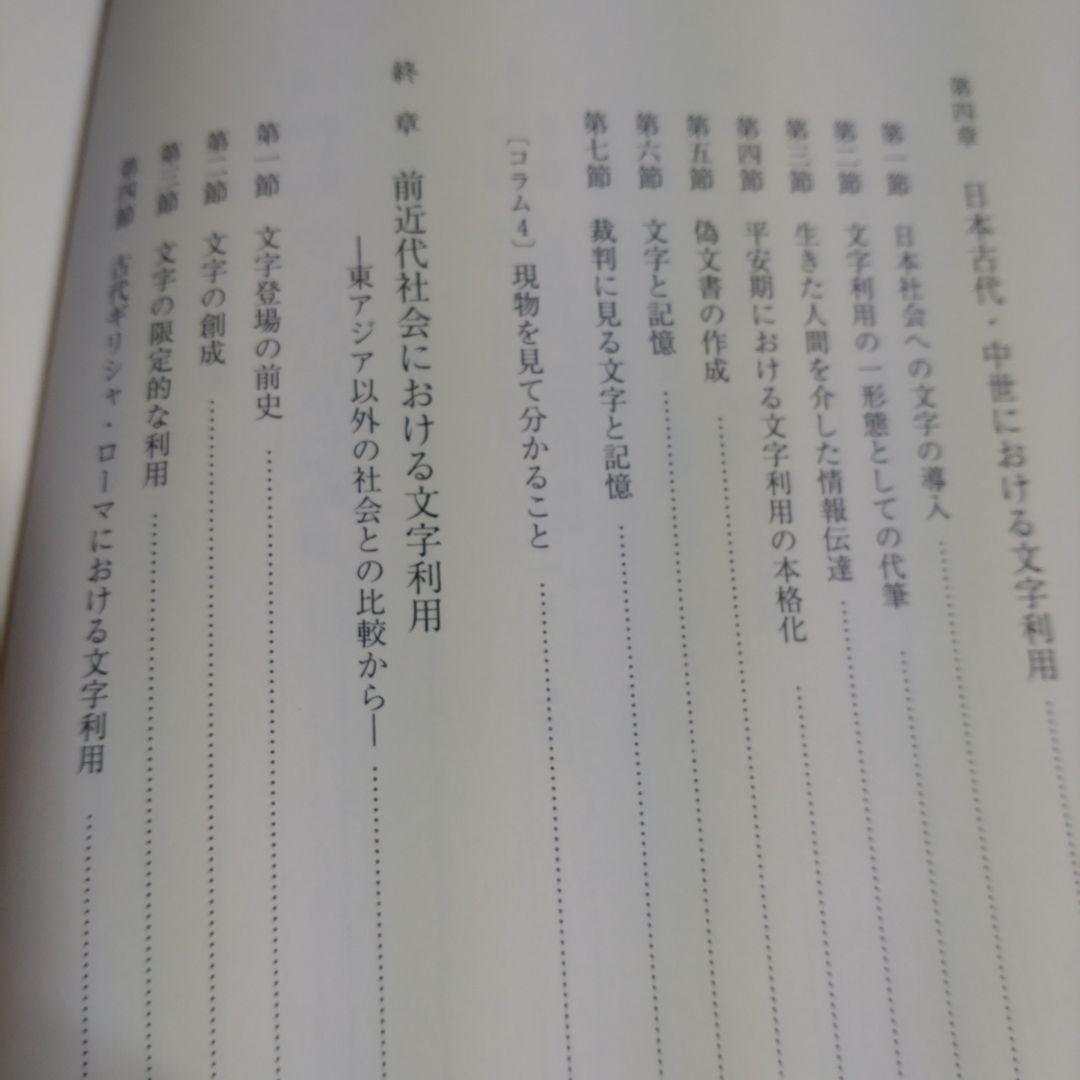 第四章 日本古代・中世における文字利用
第一節 日本社会への文字の導入
第二節 文字利用の一形態としての代筆
第三節 生きた人間を介した情報伝達
第四節 平安期における文字利用の本格化
第五節 偽文書の作成
第六節 文字と記憶
第七節 裁判に見る文字と記憶
〔コラム4〕現物を見て分かること
終章 前近代社会における文字利用
―東アジア以外の社会との比較から―
第一節 文字登場の前史
第二節 文字の創成
第三節 文字の限定的な利用
第四節 古代ギリシャ・ローマにおける文字利用